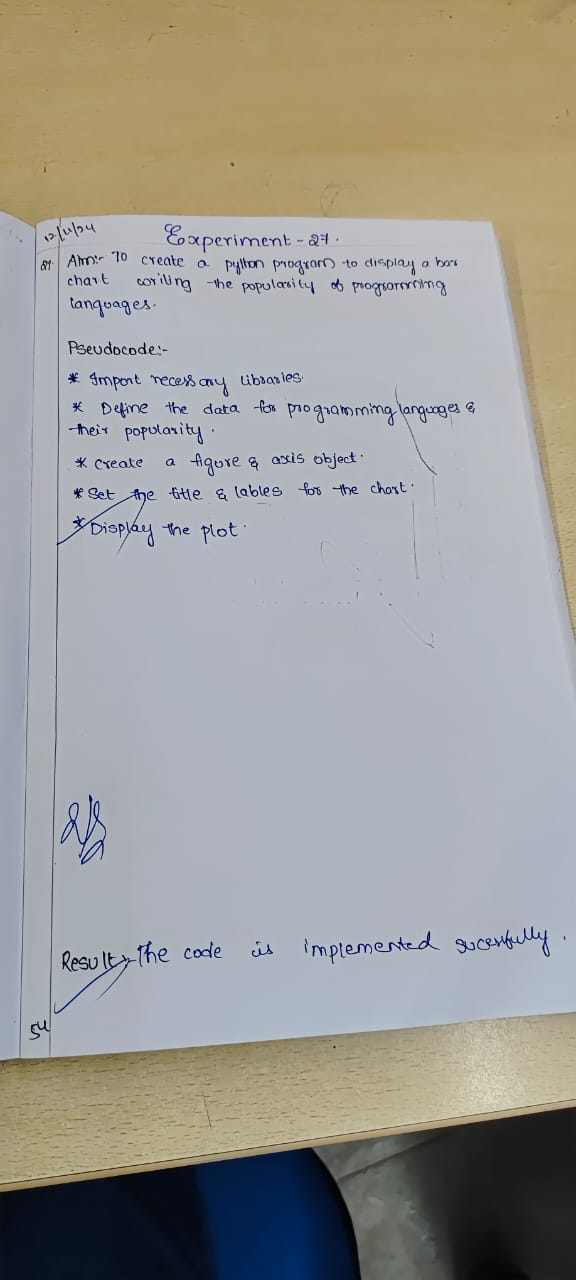 12/11/24
Experiment - 27.
27. Aim:- To create a python program to display a bar
chart writing the popularity of programming
languages.
Pseudocode:-
* Import necessary libraries.
* Define the data for programming languages &
their popularity.
* create a figure & axis object.
* Set the title & lables for the chart.
* Display the plot.
Result:- The code is implemented sucessfully.
54